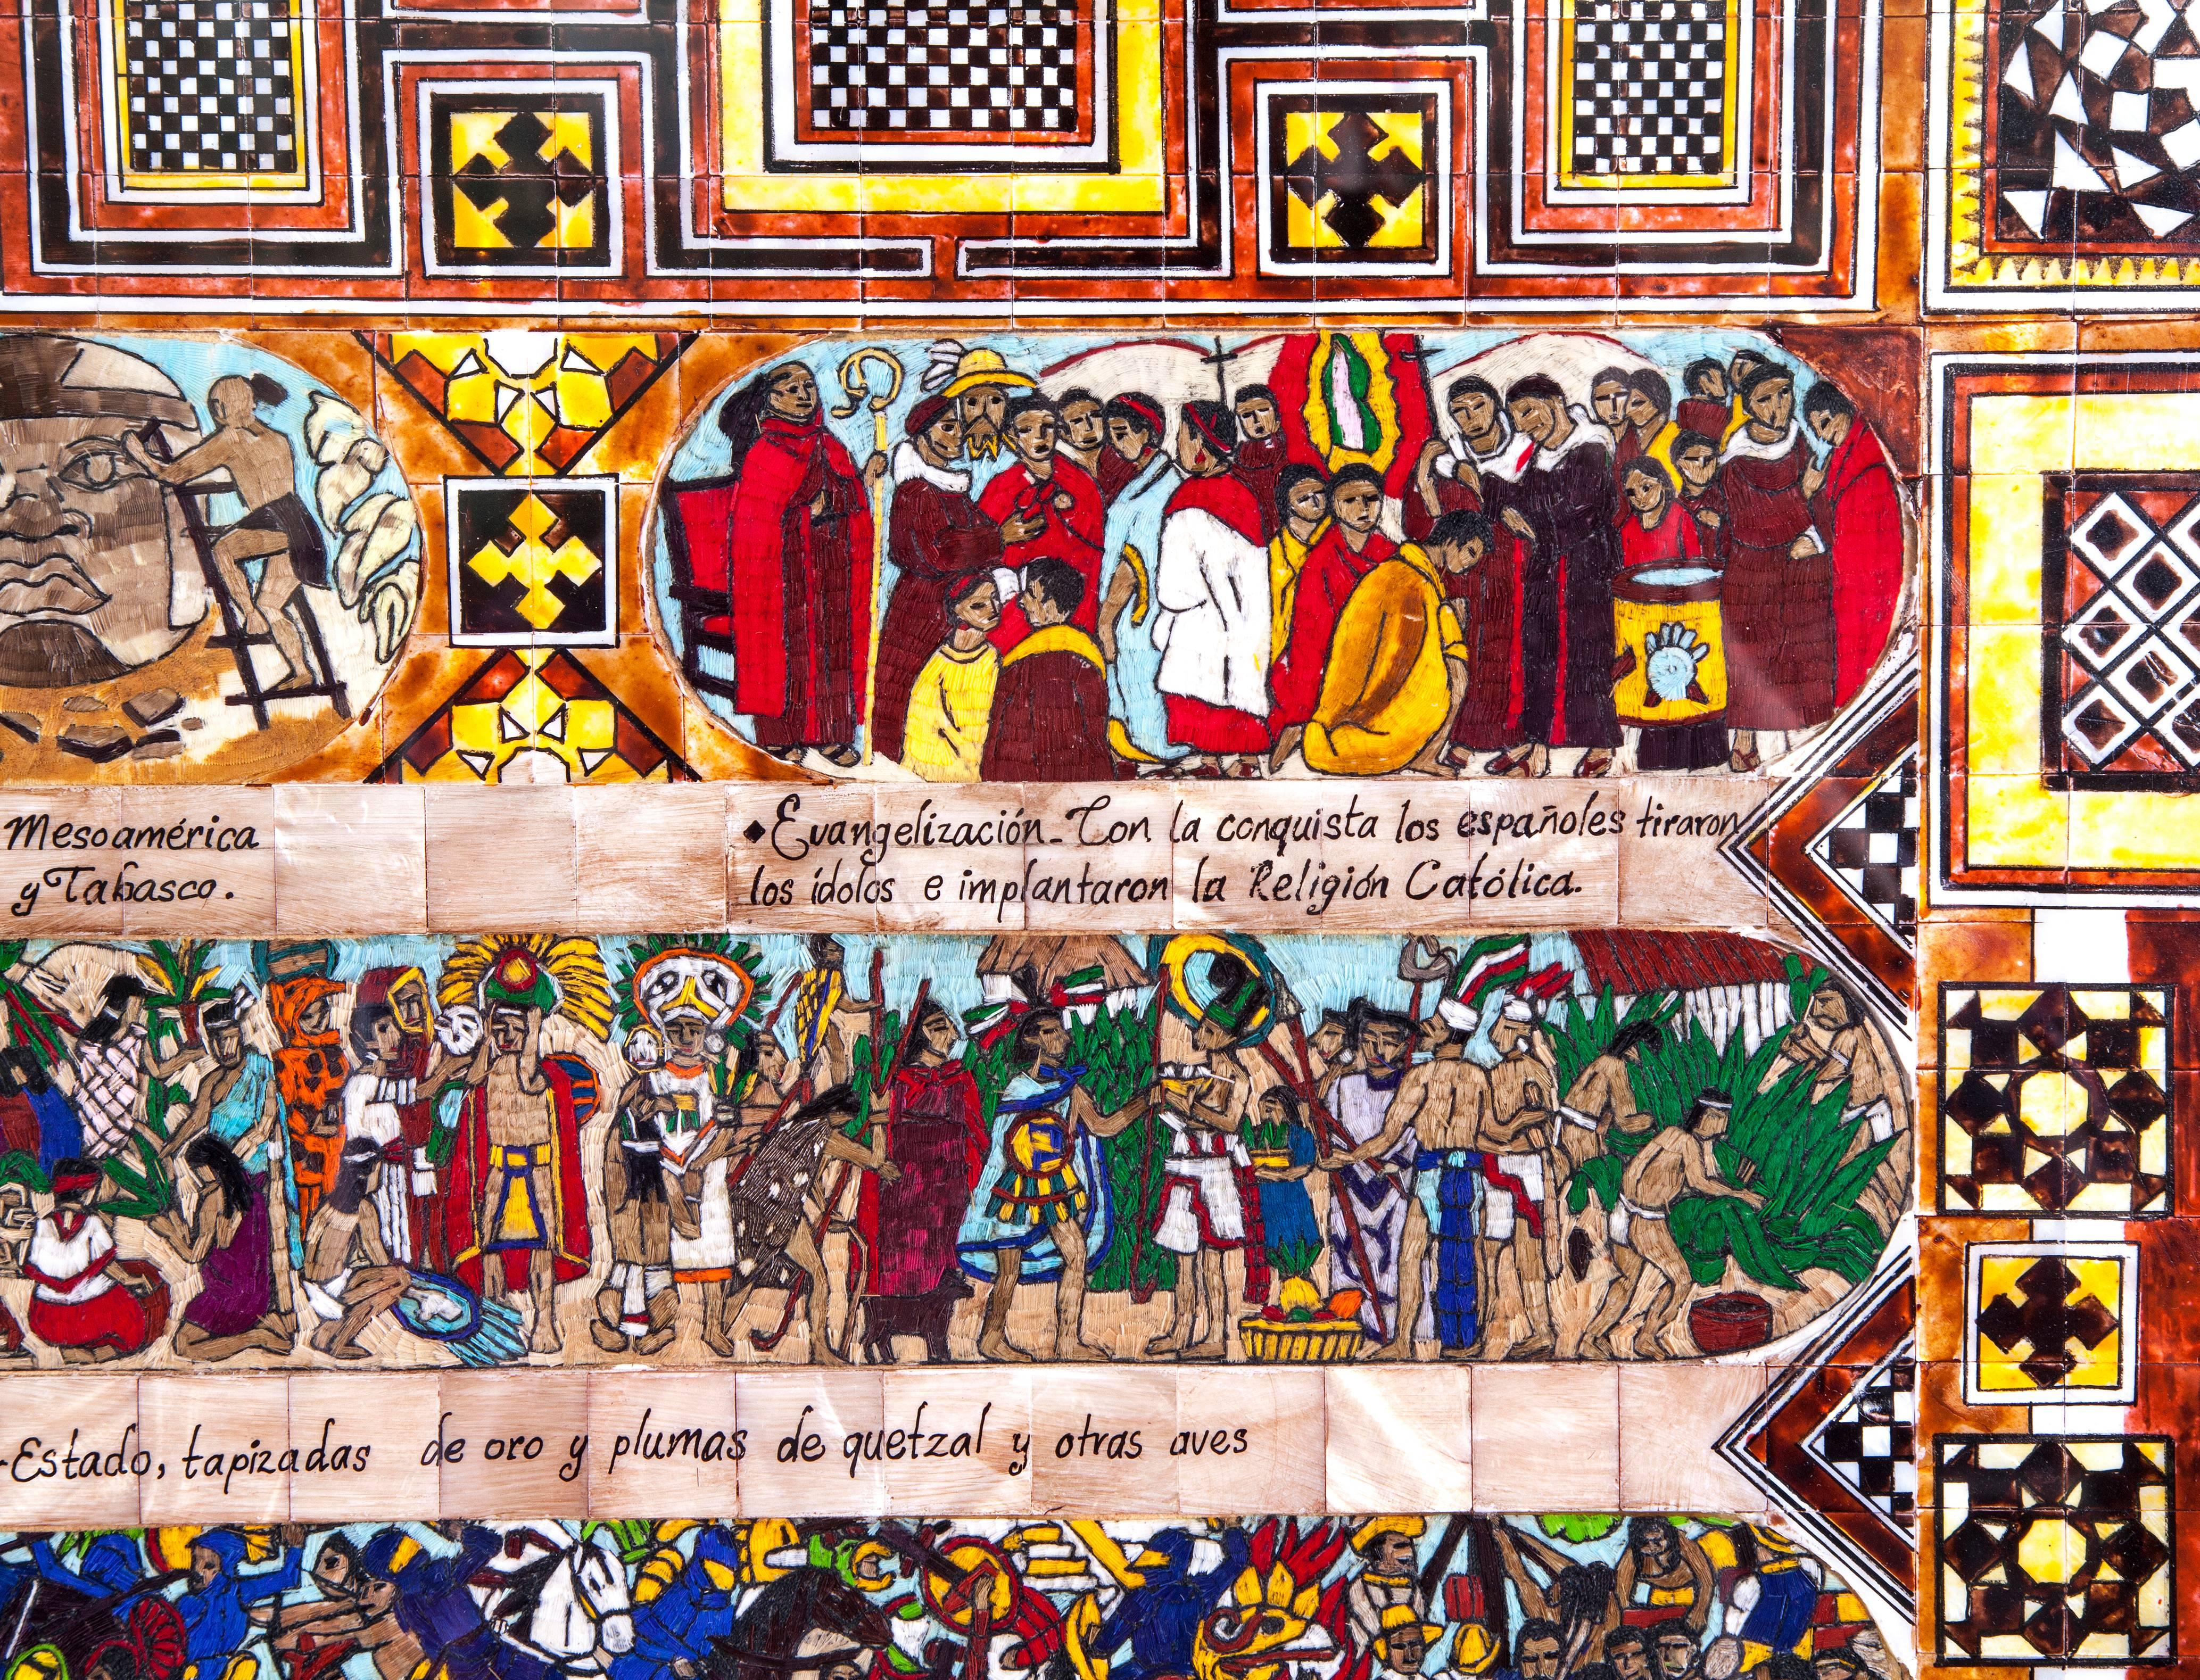 Mesoamérica
y Tabasco.
Evangelización- Con la conquista los españoles tiraron
los ídolos e implantaron la Religión Católica.
Estado, tapizadas de oro y plumas de quetzal y otras aves